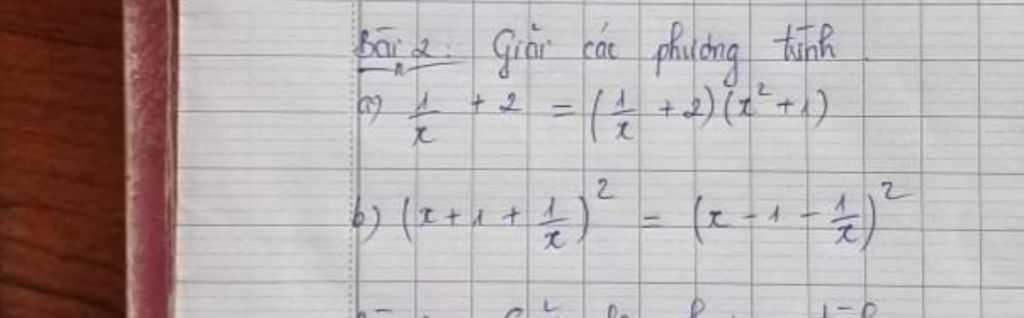 Bài 2: Giải các phương trình.
a) 1/x + 2 = (1/x + 2)(x² + 1)
b) (x + 1 + 1/x)² = (x - 1 - 1/x)²